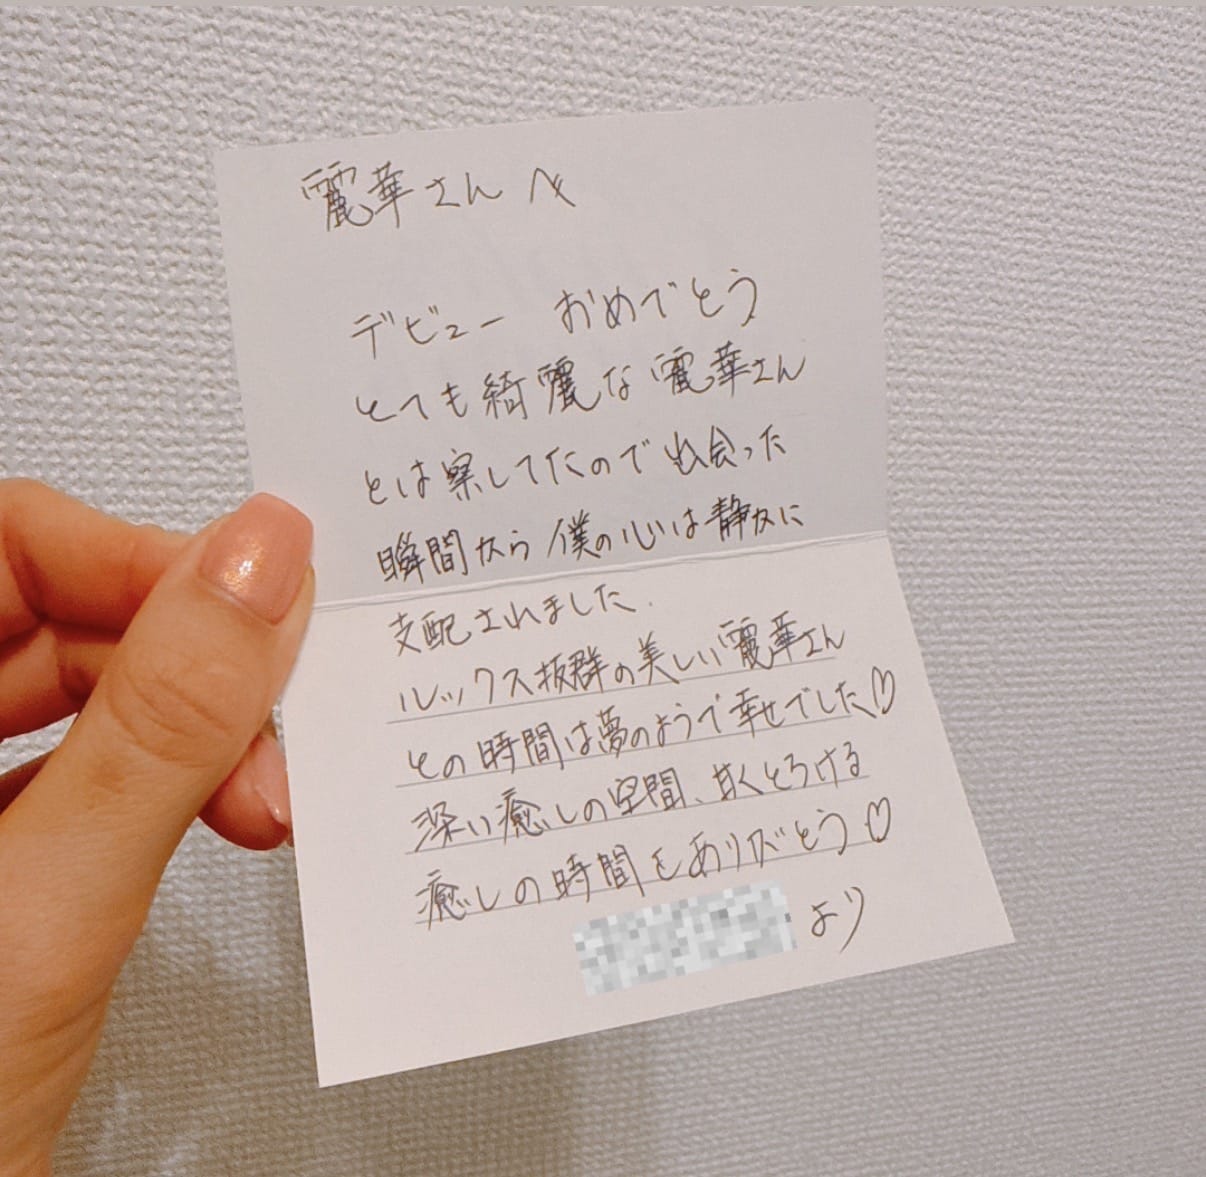 麗華さんへ
デビュー おめでとう
とても綺麗な麗華さん
とは察してたので出会った
瞬間から僕の心は静かに
支配されました.
ルックス抜群の美しい麗華さん
との時間は夢のようで幸せでした♡
深い癒しの空間、甘くとろける
癒しの時間をありがとう♡
より